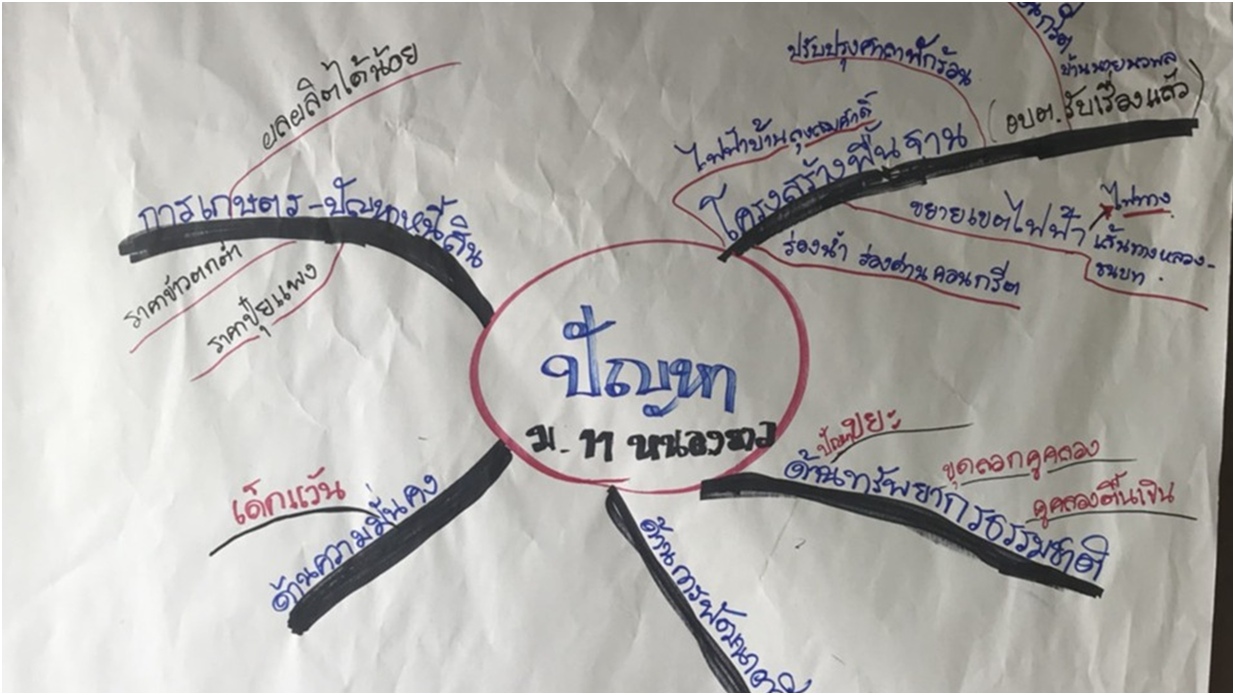 ปัญหา
ม. 11 หนองยาว
การเกษตร - ปัญหาหนี้สิน
ผลผลิตได้น้อย
ราคาข้าวตกต่ำ
ราคาปุ๋ยแพง
โครงสร้างพื้นฐาน
(อบต. รับเรื่องแล้ว)
ปรับปรุงศาลาพักร้อน
ไฟฟ้าบ้าน
ขยายเขตไฟฟ้า
ไฟทาง
เส้นทางหลวง-
ชนบท.
ร่องน้ำ ร่อง คอนกรีต
ด้านทรัพยากรธรรมชาติ
ปัญหาขยะ
ขุดลอกคูคลอง
คูคลองตื้นเขิน
ด้านความมั่นคง
เด็กแว้น
ด้านการพัฒนา